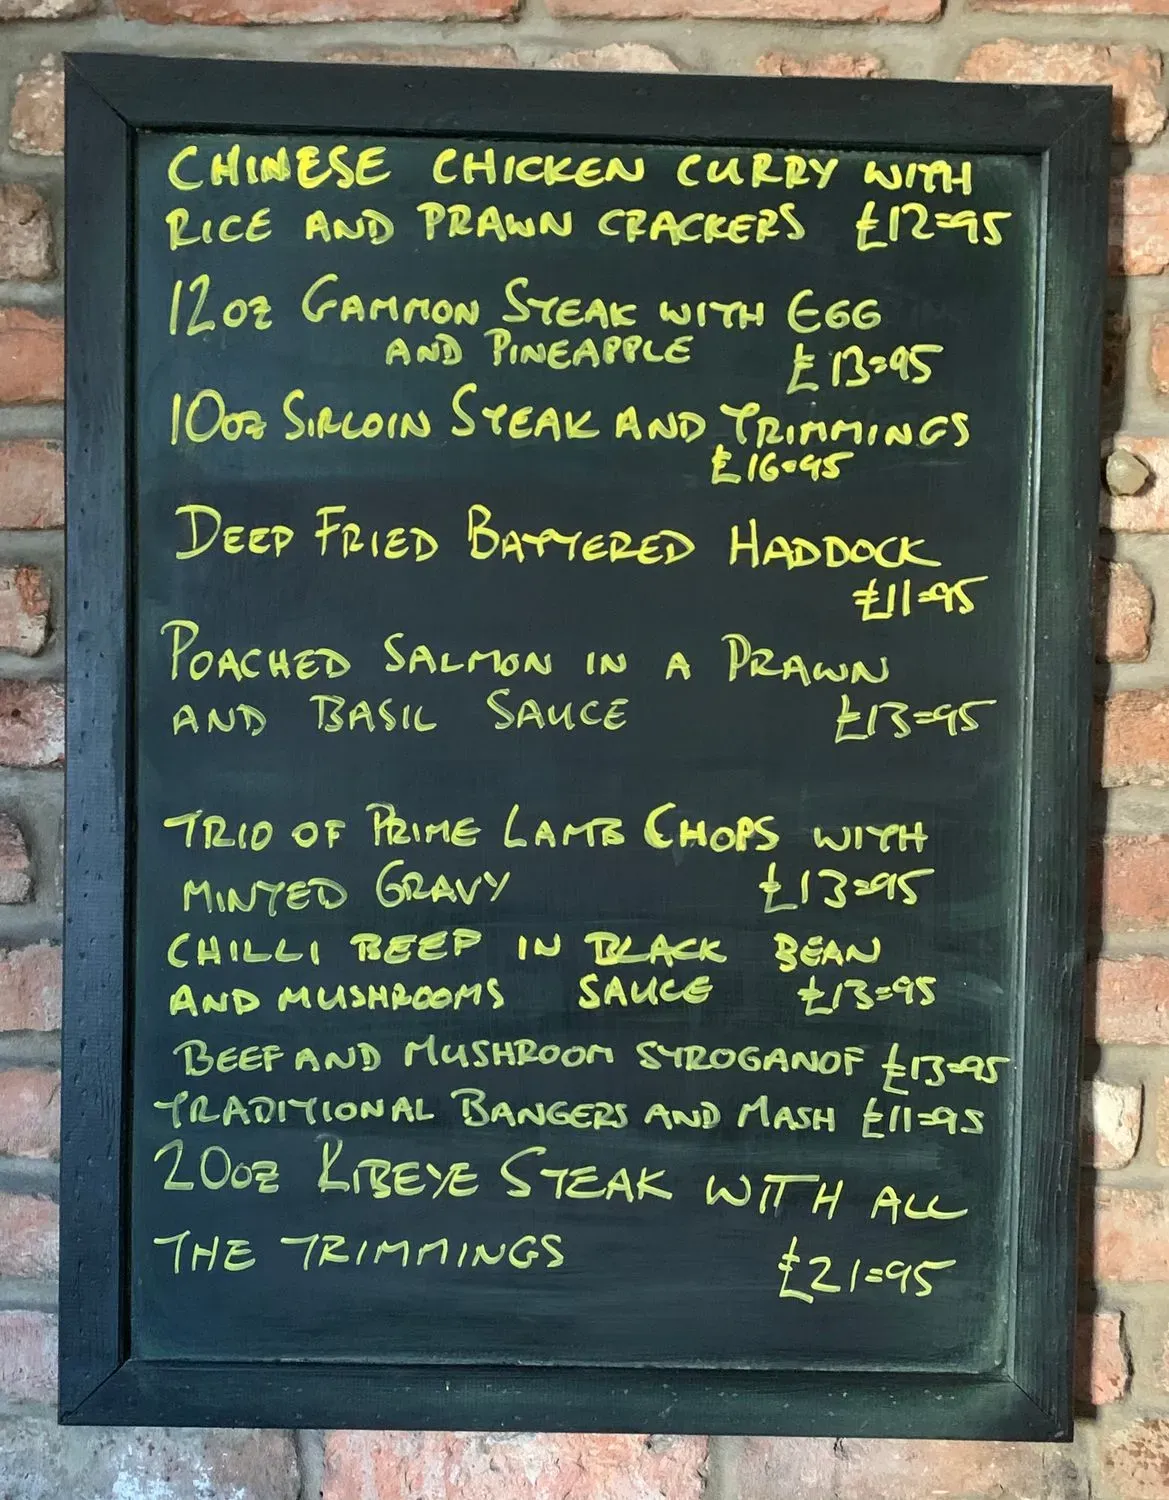 CHINESE CHICKEN CURRY WITH
RICE AND PRAWN CRACKERS £12=95
12oz GAMMON STEAK WITH EGG
AND PINEAPPLE £13=95
10oz SIRLOIN STEAK AND TRIMMINGS
£16=95
DEEP FRIED BATTERED HADDOCK
£11=95
POACHED SALMON IN A PRAWN
AND BASIL SAUCE £13=95
TRIO OF PRIME LAMB CHOPS WITH
MINTED GRAVY £13=95
CHILLI BEEF IN BLACK BEAN
AND MUSHROOMS SAUCE £13=95
BEEF AND MUSHROOM STROGANOF £13=95
TRADITIONAL BANGERS AND MASH £11=95
20oz RIBEYE STEAK WITH ALL
THE TRIMMINGS £21=95